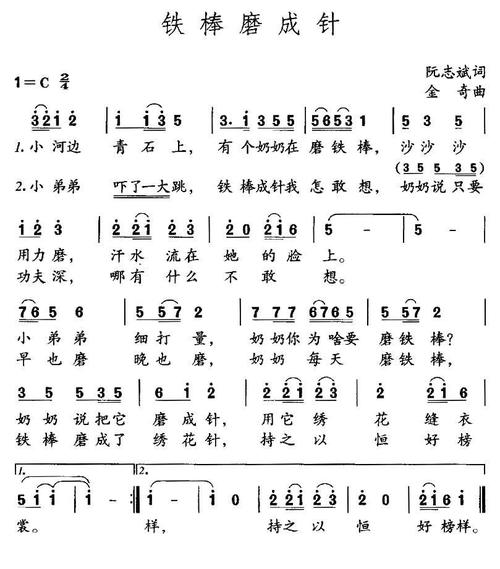 铁棒磨成针
1=C 2/4
阮志斌词
金奇曲
3212 | 1 135 | 3·1355 | 56531 | 5 3 5 |
1.小河边 青石上, 有个奶奶在磨铁棒, 沙沙沙
(35 5 35)
2.小弟弟 吓了一大跳, 铁棒成针我怎敢想, 奶奶说只要
1 2 3 | 2 21 2 3 | 2 0 2 21 6 | 5 - | 5 - |
用力磨, 汗水流在她的脸上。
功夫深, 哪有什么不敢想。
765 6 | 5 57 2 | 7 77 6765 | 5 57 2 |
小弟弟 细打量, 奶奶你为啥要磨铁棒?
早也磨 晚也磨, 奶奶每天磨铁棒,
3 5 5 35 | 5 1 2 | 2 21 2 3 | 2 2121 |
奶奶说把它磨成针, 用它绣花缝衣
铁棒磨成了绣花针, 持之以恒好榜
1. 2.
5 1 1 | 1 - :| 1 - | 1 0 | 2 21 2 3 | 2 0 2161 | 1 0 ‖
裳。 样, 持之以恒好榜样。